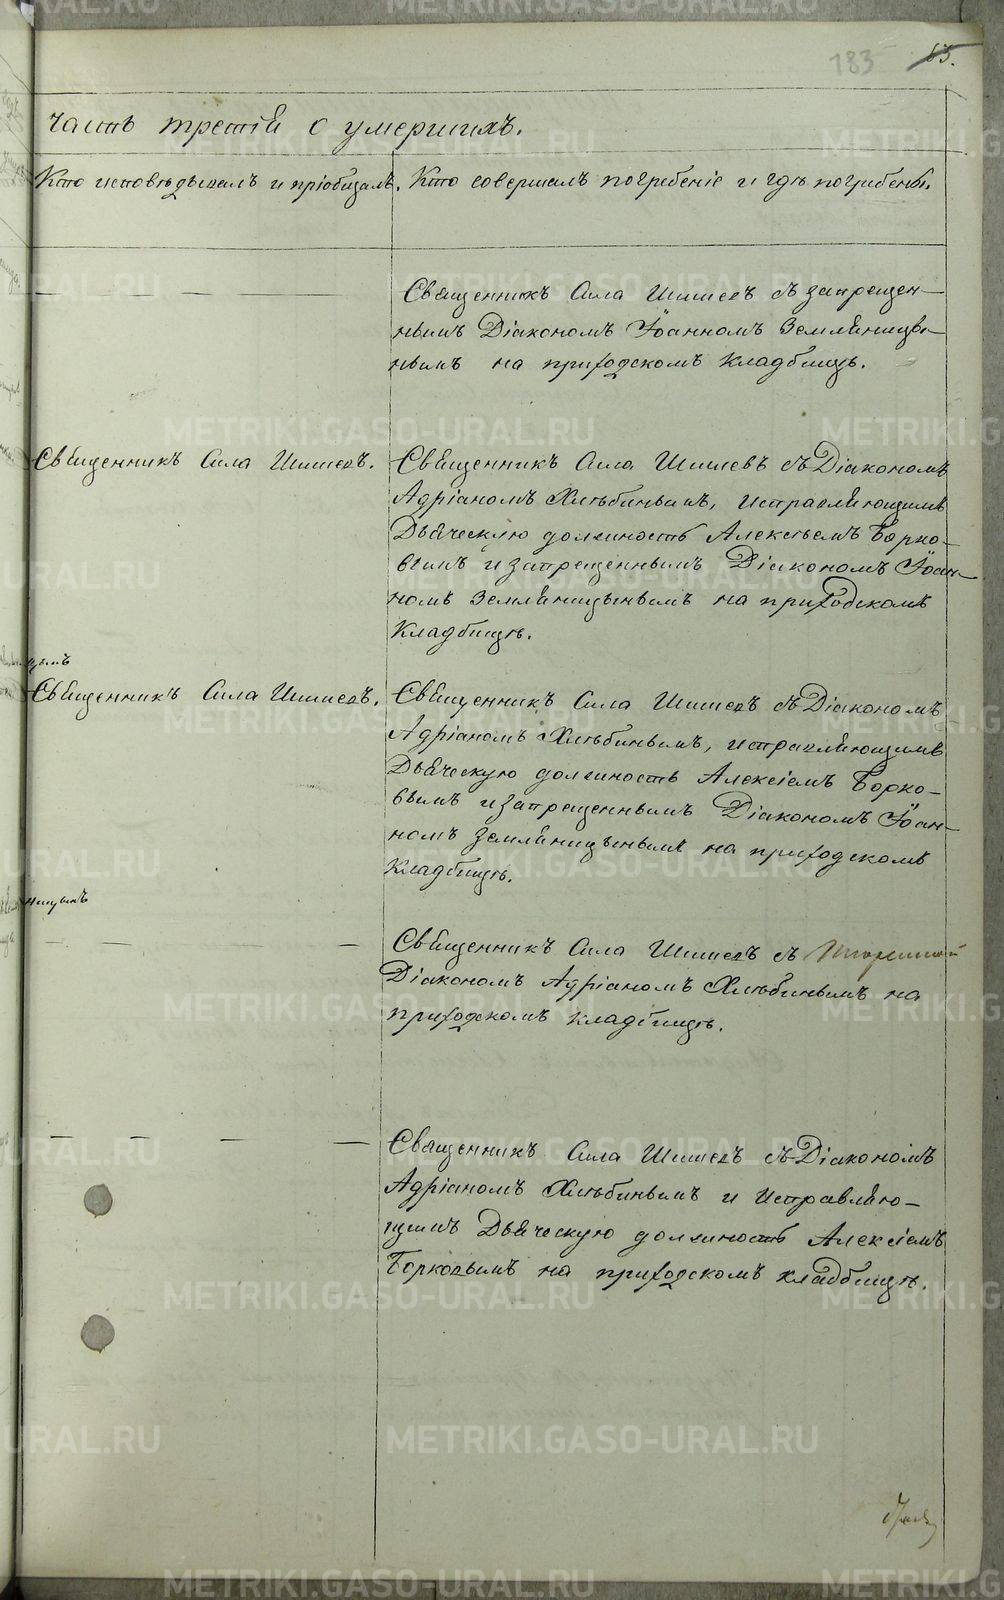 183
83.
Часть третія о умершихъ.
Кто исповѣдывалъ и пріобщалъ. Кто совершалъ погребеніе и гдѣ погребены.
Священникъ Сила Шишевъ съ запрещен-
нымъ Діакономъ Іоанномъ Земляницы-
нымъ на приходскомъ кладбищѣ.
Священникъ Сила Шишевъ.
Священникъ Сила Шишевъ съ Діакономъ
Адріаномъ Хлѣбинымъ, исправляющимъ
Дьяческую должность Алексѣемъ Борко-
вымъ и запрещеннымъ Діакономъ Іоан-
номъ Земляницынымъ на приходскомъ
кладбищѣ.
Священникъ Сила Шишевъ.
Священникъ Сила Шишевъ съ Діакономъ
Адріаномъ Хлѣбинымъ, исправляющимъ
Дьяческую должность Алексіемъ Борко-
вымъ и запрещеннымъ Діакономъ Іоан-
номъ Земляницынымъ на приходскомъ
кладбищѣ.
Священникъ Сила Шишевъ съ
Діакономъ Адріаномъ Хлѣбинымъ на
приходскомъ кладбищѣ.
Священникъ Сила Шишевъ съ Діакономъ
Адріаномъ Хлѣбинымъ и исправляю-
щимъ Дьяческую должность Алексіемъ
Борковымъ на приходскомъ кладбищѣ.
METRIKI.GASO-URAL.RU